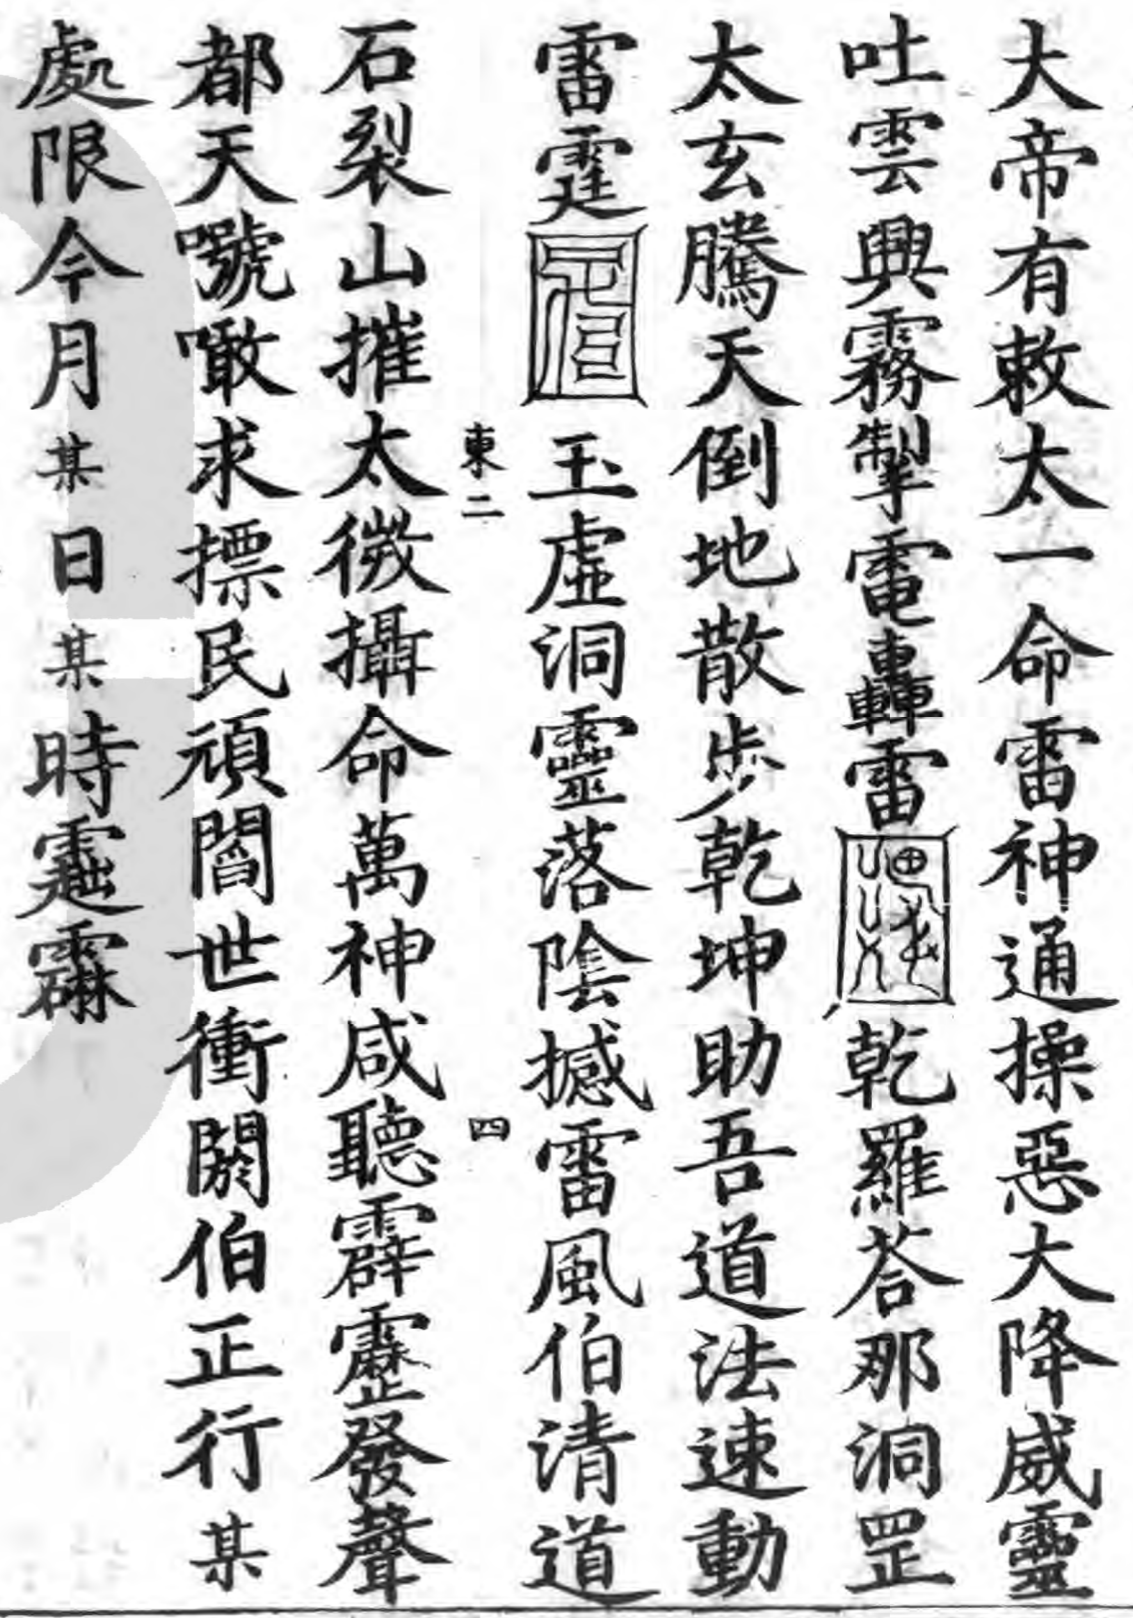 大帝有敕太一命雷神通操惡大降威靈
吐雲興霧掣電轟雷乾羅荅那洞罡
太玄騰天倒地散步乾坤助吾道法速動
雷霆玉虛洞靈落陰撼雷風伯清道
東二
四
石裂山摧太微攝命萬神咸聽霹靂發聲
都天號噉求摽民頑閻世衝閼伯正行某
處限今月某日某時